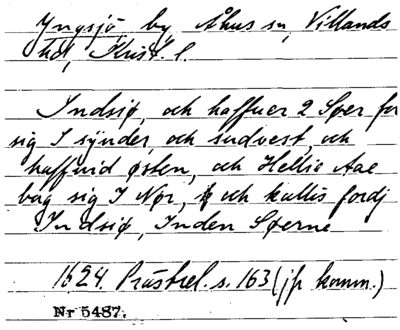 Yngsjö by, Åhus sn, Villands
hd, Krist. l.
Indsiø, och haffuer 2 Søer for
sig I sÿnder, och sudvest, och
haffuid østen, och Hellio Aae
bag sig I Nør, och kallis fordj
Indsiø, Inden Søerne
1624. Prästrel. s. 163 (jfr komm.)
Nr 5487.